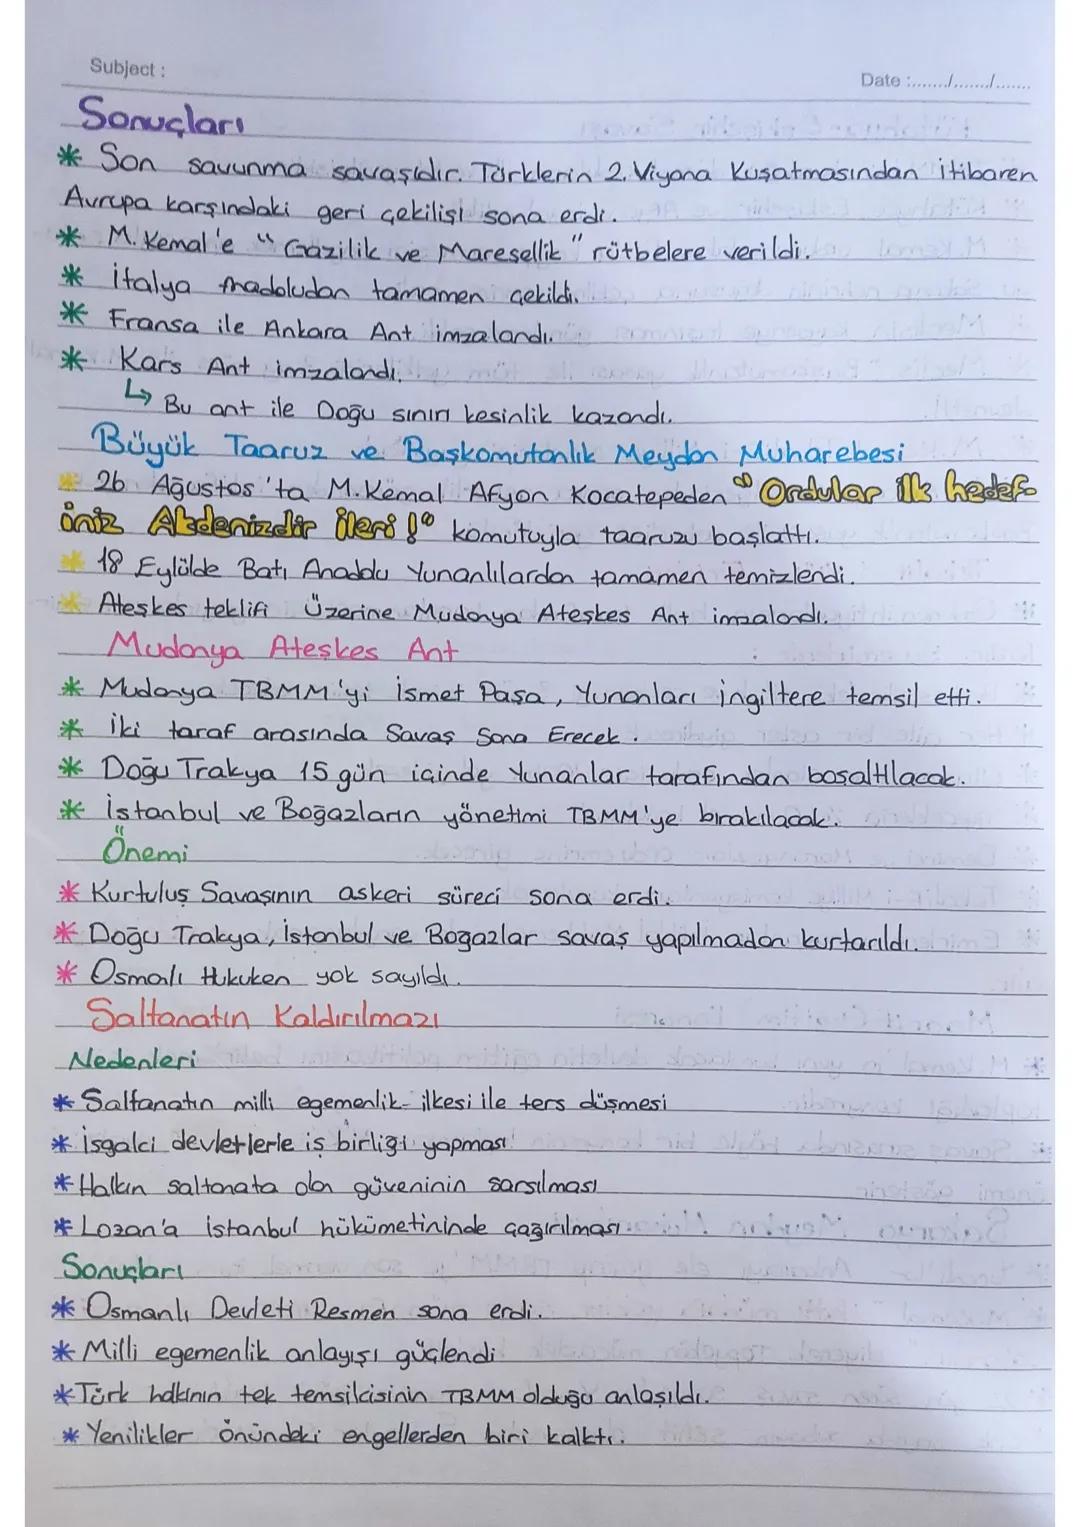 Subject :
Date :......./......./.......
Sonuçları
* Son savunma savaşıdır. Türklerin 2. Viyana Kuşatmasından itibaren
Avrupa karşındaki geri çekilişi sona erdi.
* M. Kemal'e "Gazilik ve Mareşellik" rütbelere verildi.
* İtalya Anadoludan tamamen çekildi.
* Fransa ile Ankara Ant imzalandı.
* Kars Ant imzalandı.
↳ Bu ant ile Doğu sınırı kesinlik kazandı.
Büyük Taaruz ve Başkomutanlık Meydan Muharebesi
* 26 Ağustos'ta M.Kemal Afyon Kocatepeden "Ordular ilk hedef-
iniz Akdenizdir ileri!" komutuyla taaruzu başlattı.
* 18 Eylülde Batı Anadolu Yunanlılardan tamamen temizlendi.
* Ateşkes teklifi Üzerine Mudanya Ateşkes Ant imzalandı.
Mudanya Ateşkes Ant
* Mudanya TBMM'yi İsmet Paşa, Yunanları İngiltere temsil etti.
* İki taraf arasında Savaş Sona Erecek.
* Doğu Trakya 15 gün içinde Yunanlar tarafından boşaltılacak.
* İstanbul ve Boğazların yönetimi TBMM'ye bırakılacak.
Önemi
* Kurtuluş Savaşının askeri süreci sona erdi.
* Doğu Trakya, İstanbul ve Boğazlar savaş yapılmadan kurtarıldı.
* Osmalı Hukuken yok sayıldı.
Saltanatın Kaldırılmazı
Nedenleri
* Saltanatın milli egemenlik ilkesi ile ters düşmesi
* İşgalci devletlerle iş birliği yapması
* Halkın saltanata olan güveninin sarsılması
* Lozan'a İstanbul hükümetininde çağırılması
Sonuçları
* Osmanlı Devleti Resmen sona erdi.
* Milli egemenlik anlayışı güçlendi
* Türk halkının tek temsilcisinin TBMM olduğu anlaşıldı.
* Yenilikler önündeki engellerden biri kalktı.